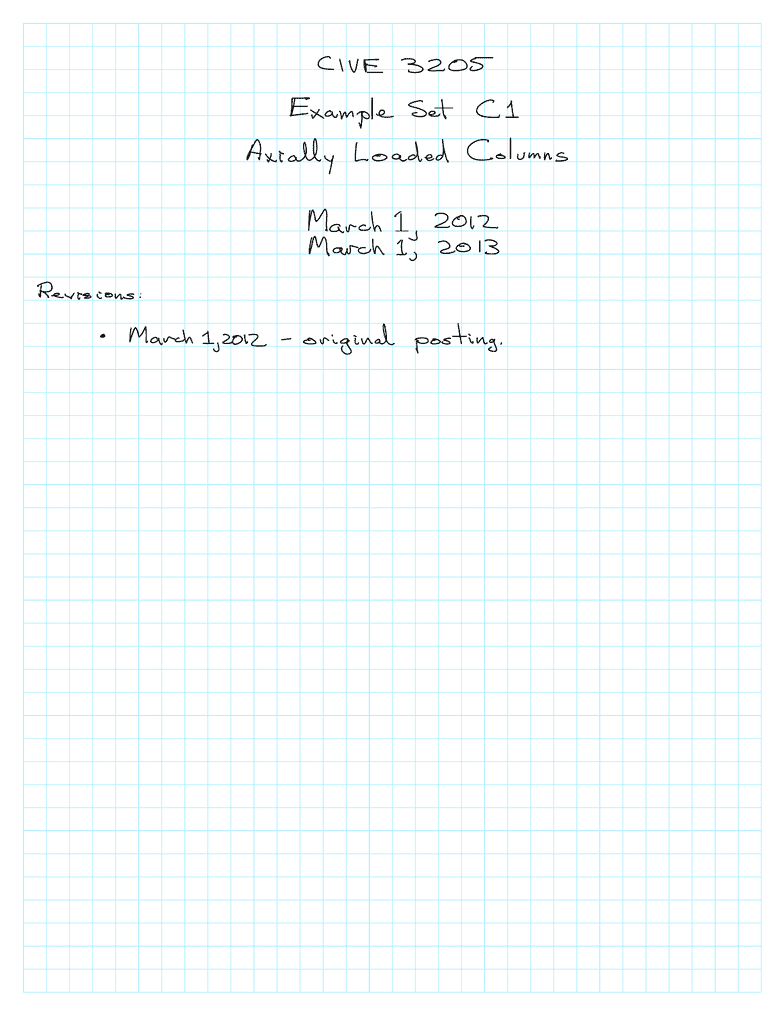 CIVE 3205
Example Set C1
Axially Loaded Columns
March 1, 2012
March 1, 2013
Revisions:
• March 1, 2012 - original posting.